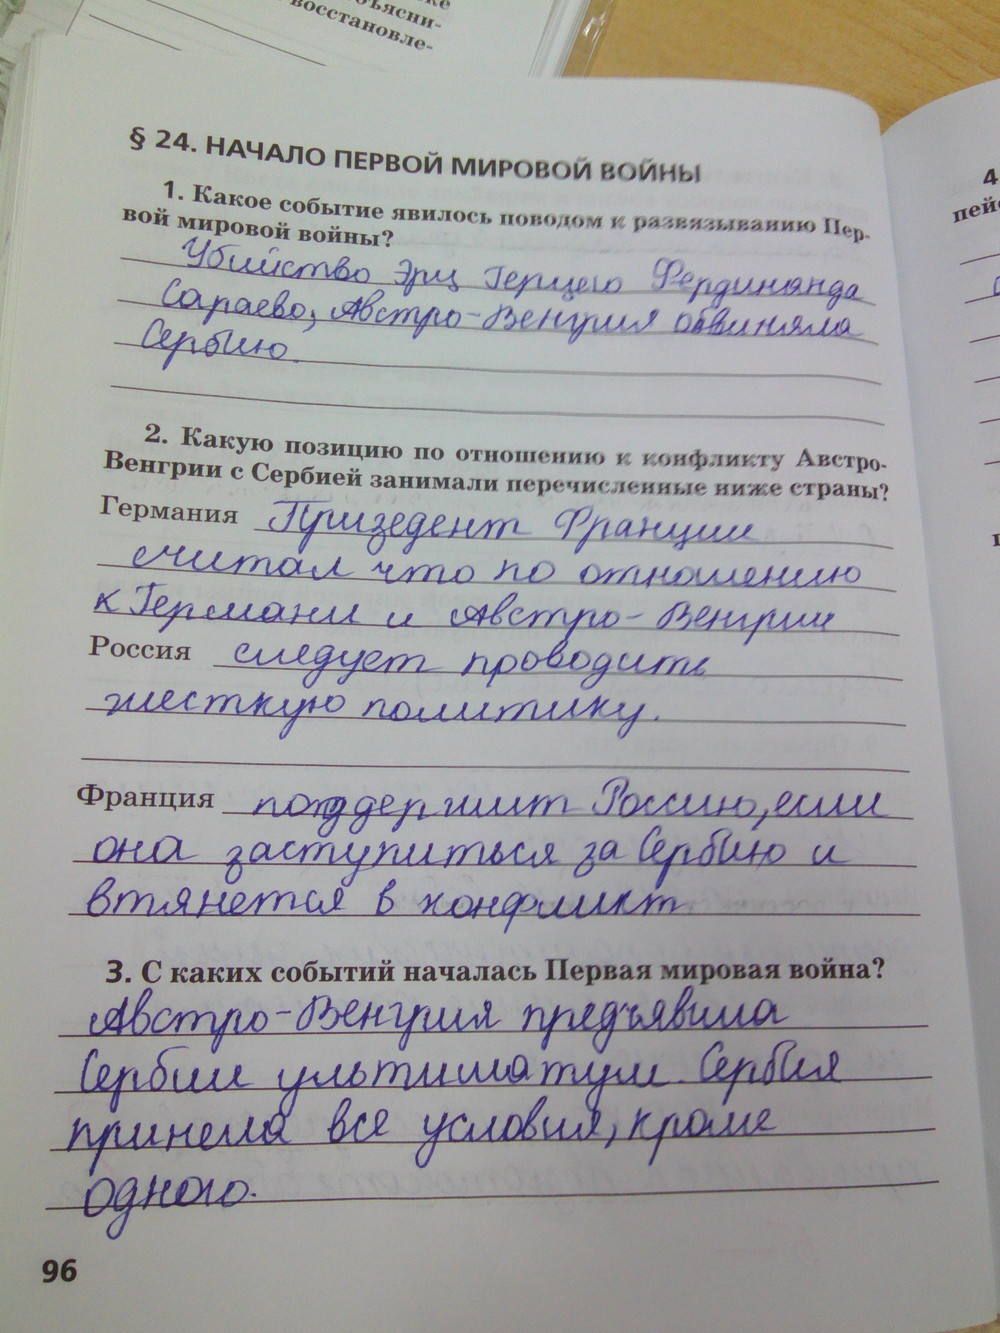 ъясни-
восстановле-
§ 24. НАЧАЛО ПЕРВОЙ МИРОВОЙ ВОЙНЫ
1. Какое событие явилось поводом к развязыванию Пер-
вой мировой войны?
Убийство Эрц Герцего Фердинанда
Сараево, Австро-Венгрия обвиняла
Сербию.
2. Какую позицию по отношению к конфликту Австро-
Венгрии с Сербией занимали перечисленные ниже страны?
Германия Призедент Франции
считал что по отношению
к Германи и Австро-Венгрии
Россия следует проводить
жесткую политику.
Франция поддержит Россию, если
она заступиться за Сербию и
втянется в конфликт
3. С каких событий началась Первая мировая война?
Австро-Венгрия предъявила
Сербии ультиматум. Сербия
принела все условия, кроме
одного.
96
4
пей